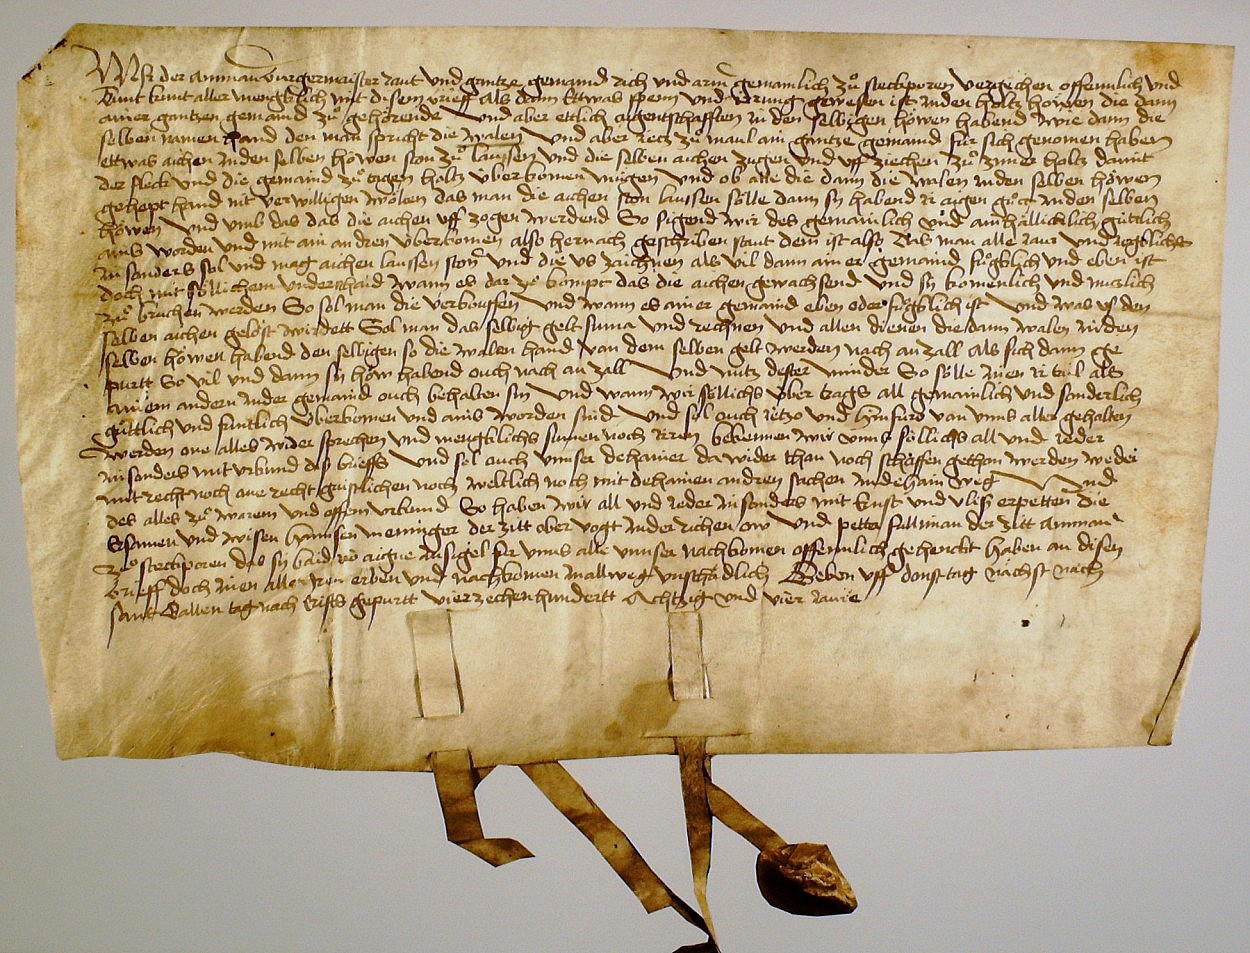 Wir der amman burgermaister raut und gantze gemaind rich und arm gemainlich zů steckboren vergichen offennlich und
tunt kunt aller mengklich mit disem brieff Als dann ettwas spenn und irrung gewesen ist inden holtz höwen die dann
ainer gantzen gemaind zů gehörende und aber ettlich aigentschafften in den selbigen höwen habend wie dann die
selben namen hand den man spricht die walen und aber ietz zů maul ain gantze gemaind für sich genomen haben
ettwas aichen inden selben höwen ston zů laussen und die selben aichen zugen und uff ziechen zů zimer holtz damit
der fleck und die gemaind zů aigen holtz überkomen mügen und ob alle die dann die walen inden selben höwen
gehept hand nit verwilligen wölten das man die aichen ston laussen sölle dann sy habend ir aigen gůt inden selben
höwen und umb das das die aichen uff zogen werdend So sigend wir des gemainlich und ainhällicklich güttlich
ains worden und mit ain andren überkomen also hernach geschriben staut dem ist also Das man alle iaur und iegklichs
in sonders sol und mag aichen laussen ston und die us zaichnen als vil dann ainer gemaind fůgklich und eben ist
doch mit söllichem underschaid wann es dar zů kompt das die aichen gewachsend und sy komenlich und nutzlich
zů bruchen werden So sol man die verkouffen und wann es ainer gemaind eben oder fůgklich ist und was us den
selben aichen gelöst wirdett Sol man das selbig gelt suma und rechnen und allen dienen die dann walen inden
selben höwen habend den selbigen so die walen hand van dem selben gelt werden nach an zall als sich dann ge
purtt So vil und dann sy höw habend ouch nach an zall und nütz dester minder So sölle inen ir tail als
ainem andern inder gemaind ouch behalten sin und wann wir söllichs über trags all gemainlich und sonderlich
güttlich und früntlich überkomen und ains worden sind und sol ouch ietzo und hinfüro van unns allen gehalten
werden one alles wider sprechen und mengklichs sumen noch irren bekennen wir unns söllichs all und ieder
in sonders mit urkund dis brieffs und sol ouch unnser dehainer da wider thun noch schaffen gethon werden weder
mit recht noch one recht gaistlichen noch weltlich noch mit dehainen andren sachen inde hain weg und
des alles zů warem und offem urkund So haben wir all und ieder in sonders mit ernst und vliss erpetten die
Ersamen und wisen hannsen menninger der zitt ober vogt inder richen ow und petter fullman der zitt amman
zů steckboren das sy baid ir aigne insigel für unns alle unnser nachkomen offennlich gehenckt haben an disen
brieff doch inen allen iren erben und nachkomen in allweg unschädlich Geben uff donstag nächst nach
sant Gallen tag nach cristi gepurtt vierzechenhundertt Achtzig und vier iaure